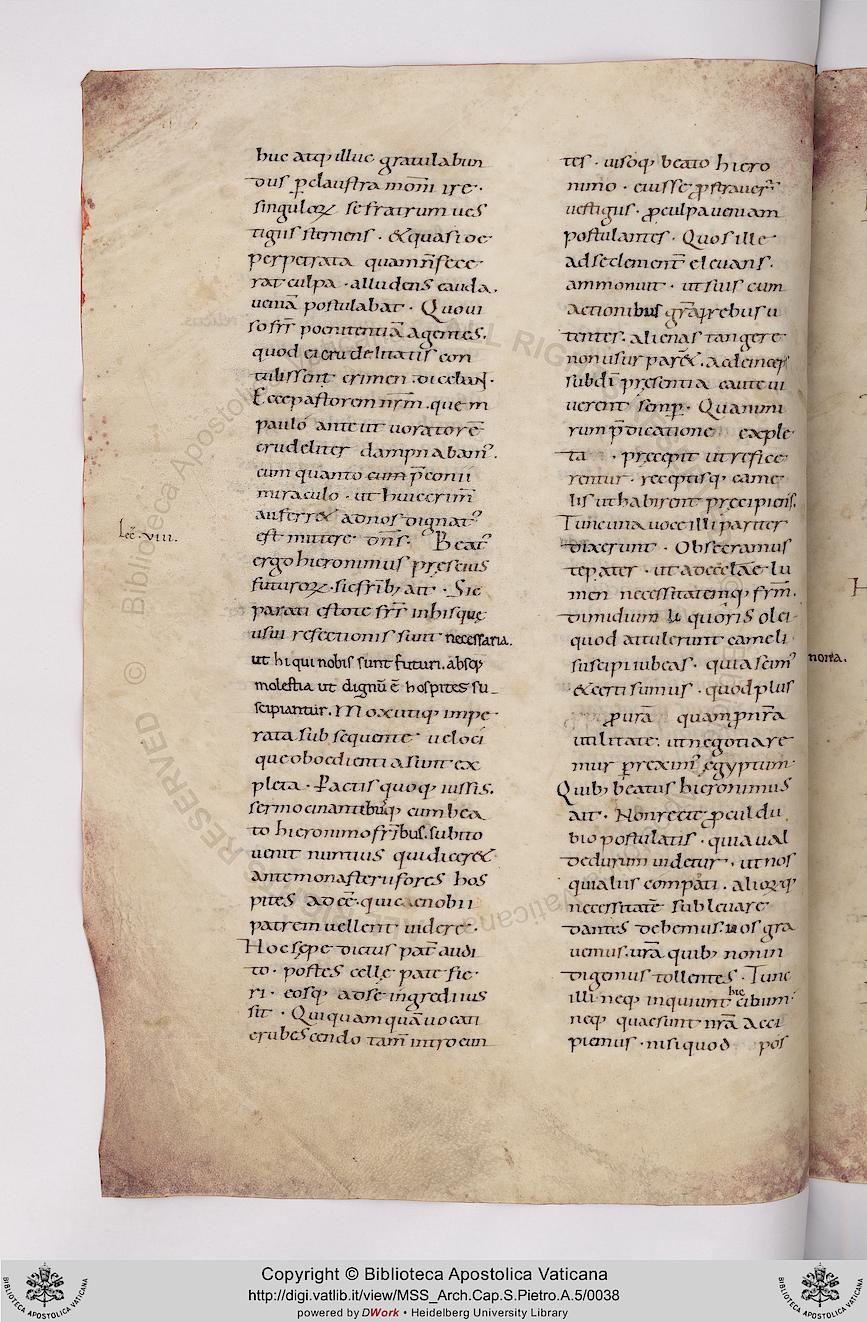 huc atq; illuc gratulabun
dus p̄ claustra mon̄i ire·
singuloꝝ se fratrum ues
tigiis sternens· & quasi de
perpetrata quam n̄ fece
rat culpa· alludens cauda.
ueniā postulabat· Quo ui
so fr̄s poenitentiā agentes.
quod ei crudelitatis con
tulissent crimen dicebant·
Ecce pastorem nr̄m. quem
paulo ante ut uoratorē
crudeliter dampnabam᾽.
cum quanto cum p̄conii
miraculo· ut huic crim̄
auferr& ad nos dignat᾽
est mittere dn̄s. Beat᾽
ergo hieronimus pręscius
futuroꝝ· sic fr̄ib; ait· Sic
parati estote fr̄s in hisque
usui refectionis sunt necessaria.
ut hi qui nobis sunt futuri. absq;
molestia ut dignū ē hospites su_
scipiantur. Mox utiq; impe·
rata subsequente ueloci
que oboedientia sunt ex
pleta· Factis quoq; iussis.
sermocinantibusq; cum bea
to hieronimo fr̄ibus. subito
uenit nuntius qui dicer&
ante monasterii fores hos
pites adeē· qui cenobii
patrem uellent uidere·
Hoc sępe dictus pat̄ audi
to· postes cellę pate fie·
ri· eosq; ad se ingredi ius
sit· Qui quam quā uocati
erubescendo tam̄ introeun
Lec̄·VIII.
tes· uisoq; beato hiero
nimo· eius se p̄strauer̄
uestigiis· p̄ culpa ueniam
postulantes· Quos ille
ad se clement̄ eleuans.
ammonuit· ut suis cum
actionibus gr̄aȝ rebus u
tentes. alienas tangere
non usurpar&. ac deinceps
sub dī pręsentia caute ui
uerent semp̄· Quanuni
rum p̄dicatione exple
ta· precepit ut refice
rentur· receptisq; came
lis ut habirent pręcipiens.
Tunc una uoce illi pariter
dixerunt· Obsecramus
te pater· ut ad ecclāe lu
men necessitatemq; fr̄m.
dimidium quoris olei
quod attulerunt cameli
suscipi iubeas· quia scim᾽
& certi sumus· quod plus
p̄ urā quam p̄ nr̄a
utilitate. ut negotiare
mur p̄reximꝰ ęgyptum·
Quib; beatus hieronimus
ait· Non recte p̄culdu
bio postulatis· quia ual
de durum uidetur· ut nos
qui aliis compati· alioꝝq;
necessitatē subleuare
dantes debemus. uos gra
uemus. urā quib; non in
digemus tollentes· Tunc
illi neq; inquiunt hic cibum·
neq; quae sunt nr̄a acci
piemus· nisi quod pos
noria.
Copyright © Biblioteca Apostolica Vaticana
http://digi.vatlib.it/view/MSS_Arch.Cap.S.Pietro.A.5/0038
powered by DWork • Heidelberg University Library